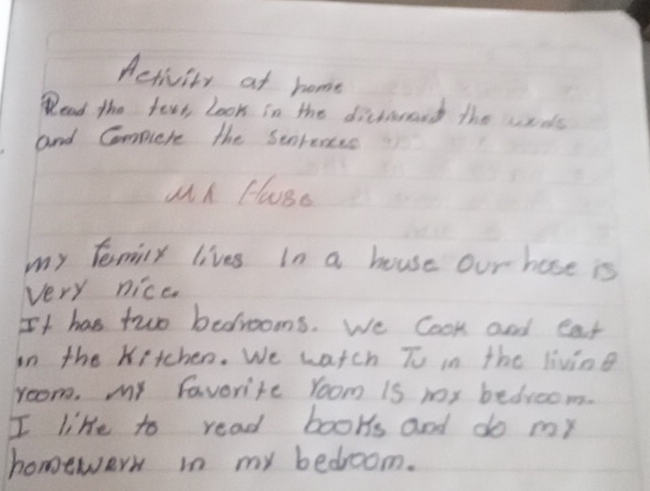 Activity at home
Read tha text, Look in the dictionard the words
and Complete the Sentences
My House
my Family lives In a house Our hose is
Very nice.
It has two bedrooms. We Cook and Eat
in the Kitchen. We watch TV in the living
room. My Favorite room IS my bedroom.
I like to read books and do my
homework in my bedroom.